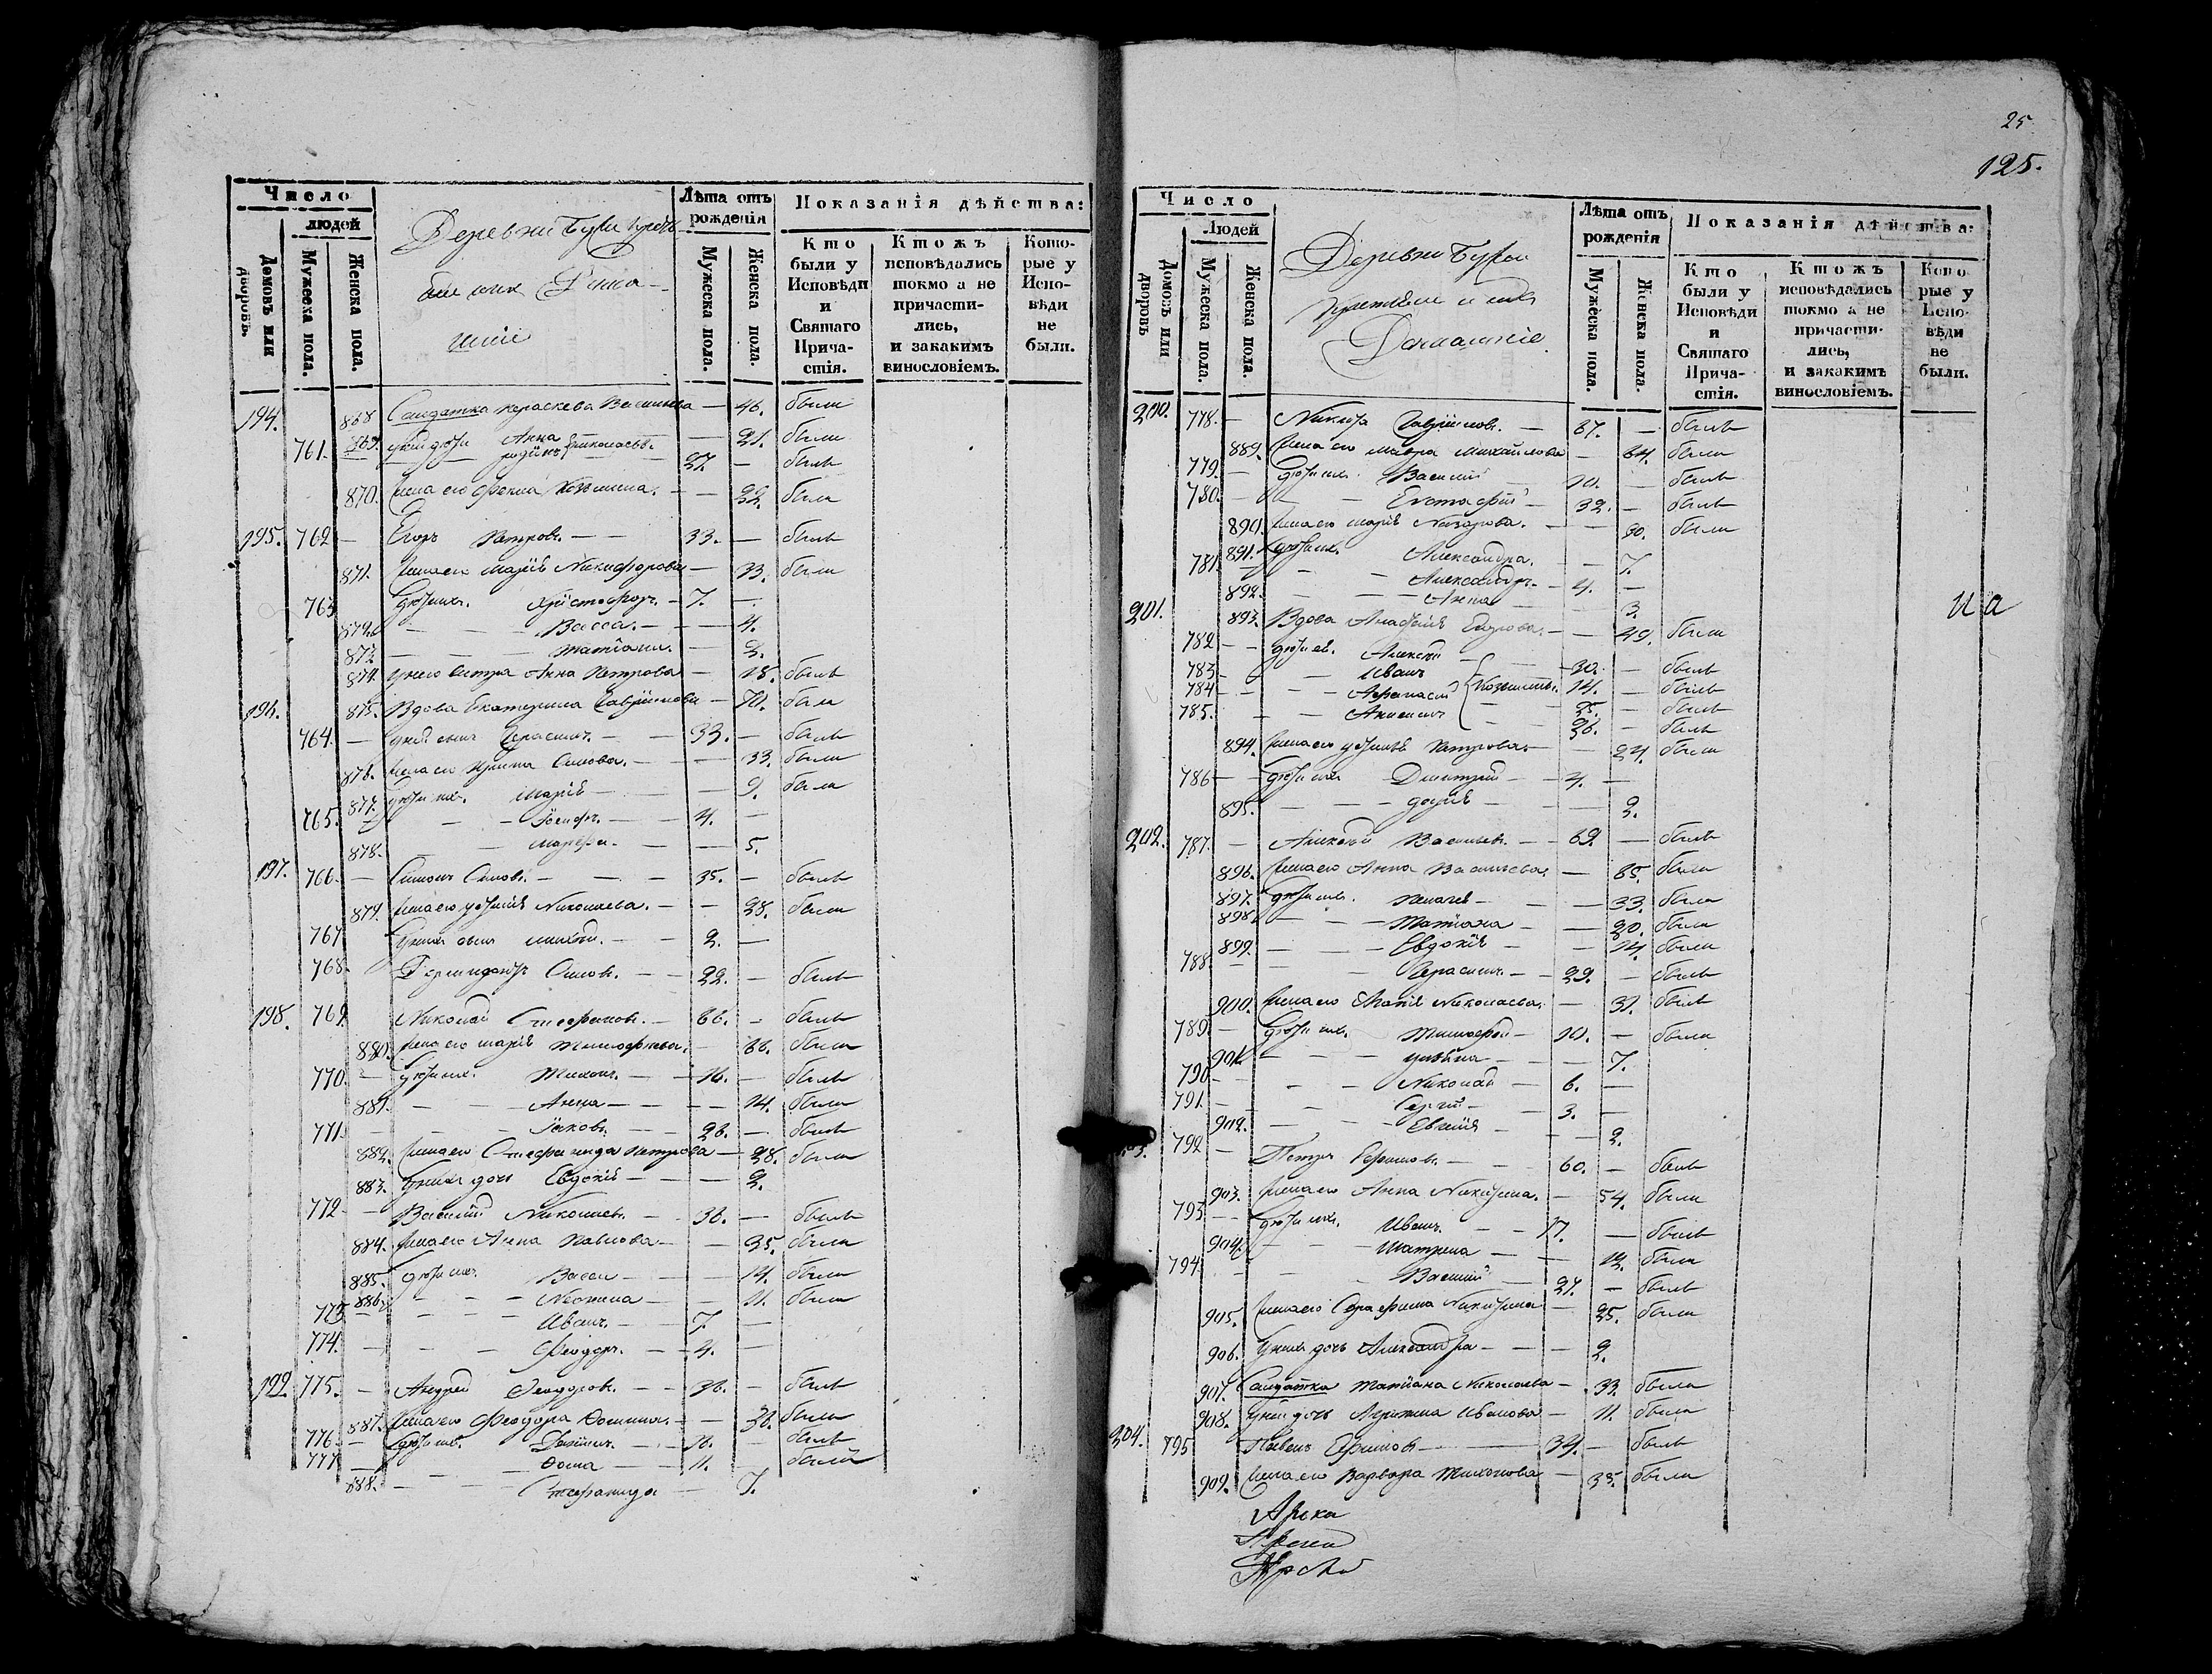 Число
людей
Домовъ или дворовъ.
Мужеска пола.
Женска пола.
Деревни
Лѣта отъ рожденія
Мужеска пола.
Женска пола.
Показанія дѣйства:
Кто были у Исповѣди и Святаго Причастія.
Ктожъ исповѣдались токмо а не причастились, и закакимъ винословіемъ.
Которые у Исповѣди не были.
194. 868 Солдатка Параскева Васильева — 46. была
869. Анна — 21. была
761. 27. — былъ
870. жена его Фекла Козьмина. — — 22. была
195. 762 — Егоръ Петровъ. — — 33. — былъ
871. жена его Марія Никифорова — 33. была
763 дѣти ихъ. Христофоръ. — 7. —
872. — — Васса. — — 4.
873 — — Татіана. — 2.
874. у него сестра Анна Петрова — 18. былъ
196. 875. Вдова Екатерина Гавриилова — 70. была
764. — у ней сынъ Герасимъ. — — 33. — былъ
876. жена его Ирина Симова. — — 33. была
877. дѣти ихъ. Марія — — 9. была
765. — — Іосифъ. — 4. —
878. — Марфа. — — 5.
197. 766. — Симонъ Симов. — — 35. — былъ
879. жена его Устинія Николаева. — — 28. была
767 у нихъ сынъ — — 2. —
768. Симов. — — 22. — былъ
198. 769. Николай Стефанов. — 66. — былъ
880. жена его Марія Тимофеева. — 66. была
770. — дѣти ихъ. Тихонъ. — — 16. — былъ
881. — — Анна — — — 14. была
771. — — Іаковъ. — — 26. — былъ
882. жена его Стефанида Петрова — 28. была
883. у нихъ дочь Евдокія — — — 2.
772 — Василій Николаевъ. — 36. — былъ
884. жена его Анна Павлова — — 35. была
885. дѣти ихъ. Васса — — — 14. была
886. — — — Неонила — — 11. была
773 — — — Иванъ. — 7. —
774. — — — Феодоръ. — 4. —
199. 775. — Андрей Феодоровъ. — — 36. — былъ
887. жена его Феодора Фомина. — — 36. была
776. — дѣти ихъ. Даніилъ. — 16. — былъ
777 — — — Фома — — 11. былъ
888. — — Стефанида — 7.
25
125.
Число
Людей
Домовъ или дворовъ
Мужеска пола.
Женска пола.
Деревни
Домашніе
Лѣта отъ рожденія
Мужеска пола.
Женска пола.
Показанія дѣйства:
Кто были у Исповѣди и Святаго Причастія.
Ктожъ исповѣдались токмо а не причастились, и закакимъ винословіемъ.
Которые у Исповѣди не были.
200. 778. — Никита Гавриилов. — 67. — былъ
889. жена его Мавра Михайлова — 64. была
779. — дѣти ихъ. Василій 10. — былъ
780. — — — Евстафій — 32. — былъ
890. жена его Марія Назарова. — — 30. была
891. дѣти ихъ. Александра. — — 7.
781 — — — Александръ. — 4. —
892. — — — Анна 3.
201. 893. Вдова Агафія Егорова. — — 49. была
782 — — дѣти ея. Алексѣй — 30. — былъ
783 — — Иванъ Козьмины. 14. — былъ
784 — — — Афанасій 25. — былъ
785. — — Акиндинъ — — 26. — былъ
894. жена его Устинія Петрова — — 24. была
786 — — дѣти ихъ Дмитрій — — 4. —
895. — — — Дарія — — 2.
202. 787. — Алексѣй Васильевъ. — — 69 — былъ
896. жена его Анна Васильева. — 65. была
897. дѣти ихъ. Пелагея — — — 33. была
898. — — — Татіана — — 20. была
899. — — — Евдокія — — 14. была
788. — — — Герасимъ. — — 29. — былъ
900. жена его Агапія Николаева. — 31. была
789. — дѣти ихъ. Тимофей — 10. — была
901. — — — Уліяна — — — 7.
790 — — — Николай — 6. —
791. — — — Сергій — — 3. —
902. — — — Евгенія — — 2.
792 — Петръ Ефимов. — — — 60. — былъ
903. жена его Анна Никитина. — 54. была
793 — — дѣти ихъ. Иванъ. — — 17. — былъ
904. — — — Матрена — — — 12. была
794. — — — Василій — 27. — былъ
905. жена его Серафима Никитина — 25. была
906. У нихъ дочь Александра — — — 2.
907. Солдатка Татіана Николаева — 33. была
908. у ней дочь Агриппина Иванова — 11. была
204. 795 Павелъ Ефимов — — 34. — былъ
909. жена его Варвара Тихонова — 35. была